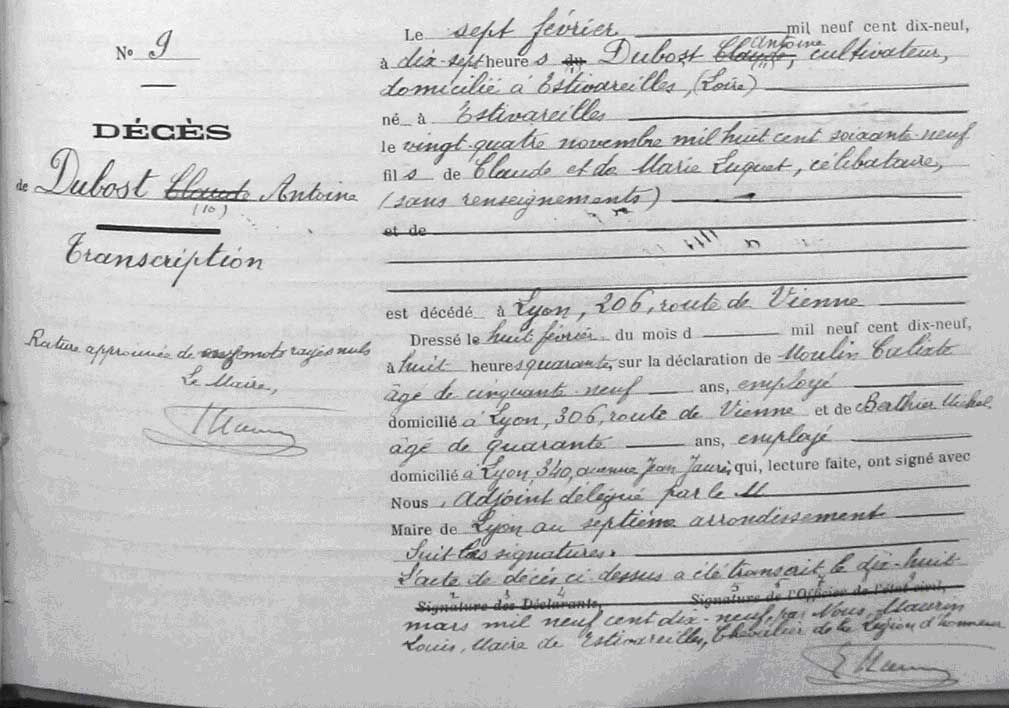 N° 9
DÉCÈS
de Dubost Claude Antoine
(10)
Transcription
Rature approuvée de neuf mots rayés nuls
Le Maire,
Le sept février mil neuf cent dix-neuf,
Antoine
à dix-sept heures du Dubost Claude, cultivateur,
(11)
domicilié à Estivareilles, (Loire)
né à Estivareilles
le vingt-quatre novembre mil huit cent soixante-neuf
fils de Claude et de Marie Luquet, célibataire,
(sans renseignements)
et de
est décédé à Lyon, 206, route de Vienne
Dressé le huit février du mois d mil neuf cent dix-neuf,
à huit heures quarante, sur la déclaration de Moulin Calixte
âgé de cinquante-neuf ans, employé
domicilié à Lyon, 306, route de Vienne et de Berthier Michel
âgé de quarante ans, employé
domicilié à Lyon, 340, avenue Jean Jaurès, qui, lecture faite, ont signé avec
Nous, Adjoint délégué par le M
Maire de Lyon au septième arrondissement
Suit les signatures.
L'acte de décès ci dessus a été transcrit le dix-huit
2 3 4 5 6 7 8 9
Signature des Déclarants, Signature de l'Officier de l'état civil,
mars mil neuf cent dix-neuf, par Nous, Maurin
Louis, Maire de Estivareilles, Chevalier de la Légion d'honneur